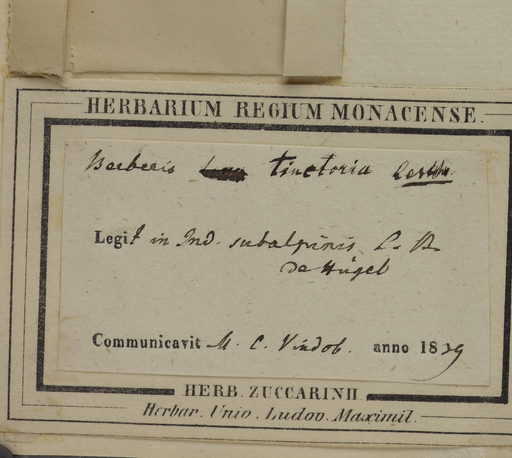 HERBARIUM REGIUM MONACENSE.
Berberis tinctoria
Legit in Ind. subalpinis L. B.
de Hügel
Communicavit M. C. Vindob. anno 1839
HERB. ZUCCARINII.
Herbar. Univ. Ludov. Maximil.